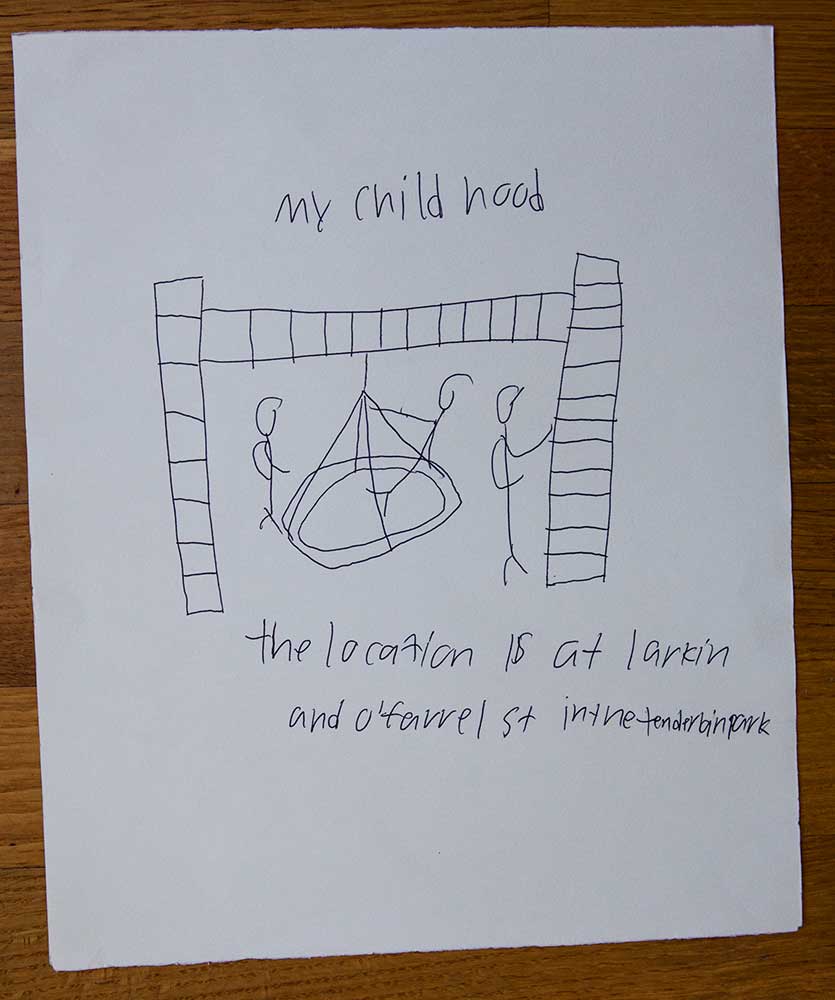 my child hood
the location is at larkin
and o'farrel st in the tenderbin park